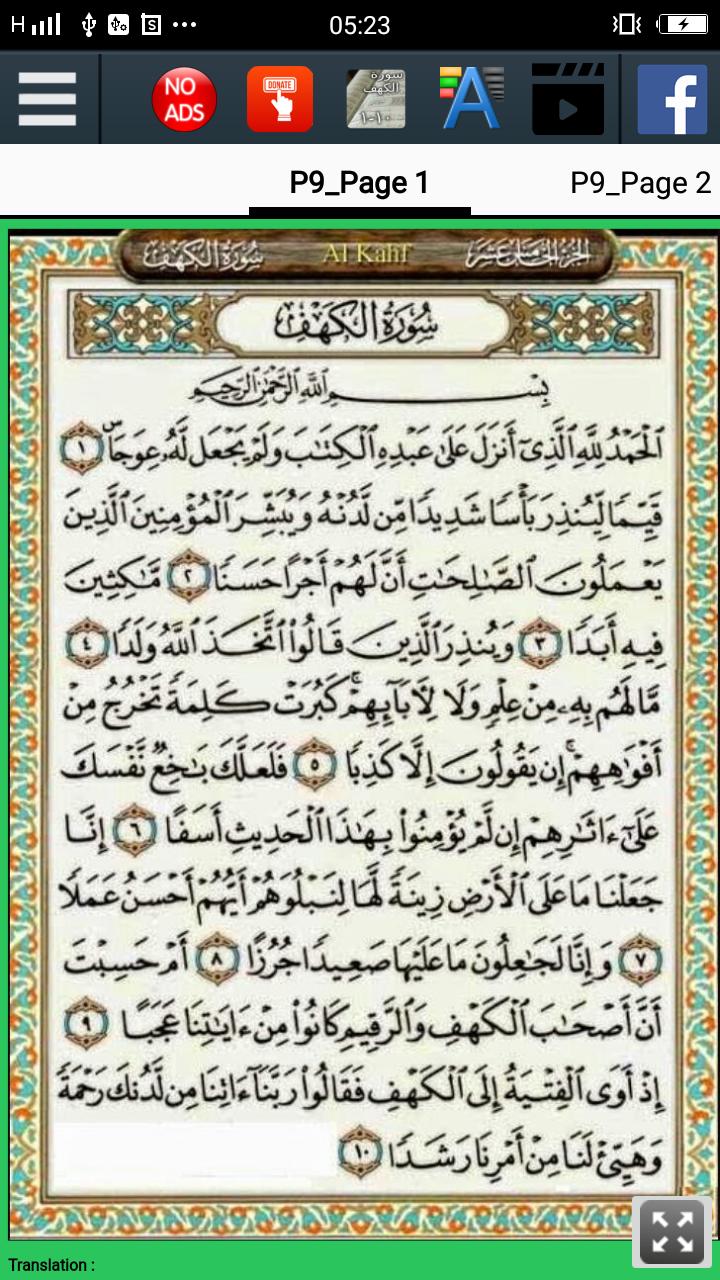 H 05:23
NO ADS
DONATE
سورة الكهف
١-١٠
P9_Page 1 P9_Page 2
سُورَةُ الكَهْفِ Al Kahf الجُزْءُ الخَامِسَ عَشَرَ
سُورَةُ الكَهْفِ
بِسْمِ اللَّهِ الرَّحْمَٰنِ الرَّحِيمِ
ٱلْحَمْدُ لِلَّهِ ٱلَّذِىٓ أَنزَلَ عَلَىٰ عَبْدِهِ ٱلْكِتَٰبَ وَلَمْ يَجْعَل لَّهُۥ عِوَجَاۜ ١
قَيِّمًا لِّيُنذِرَ بَأْسًا شَدِيدًا مِّن لَّدُنْهُ وَيُبَشِّرَ ٱلْمُؤْمِنِينَ ٱلَّذِينَ
يَعْمَلُونَ ٱلصَّٰلِحَٰتِ أَنَّ لَهُمْ أَجْرًا حَسَنًا ٢ مَّٰكِثِينَ
فِيهِ أَبَدًا ٣ وَيُنذِرَ ٱلَّذِينَ قَالُوا۟ ٱتَّخَذَ ٱللَّهُ وَلَدًا ٤
مَّا لَهُم بِهِۦ مِنْ عِلْمٍ وَلَا لِءَابَآئِهِمْ ۚ كَبُرَتْ كَلِمَةً تَخْرُجُ مِنْ
أَفْوَٰهِهِمْ ۚ إِن يَقُولُونَ إِلَّا كَذِبًا ٥ فَلَعَلَّكَ بَٰخِعٌ نَّفْسَكَ
عَلَىٰٓ ءَاثَٰرِهِمْ إِن لَّمْ يُؤْمِنُوا۟ بِهَٰذَا ٱلْحَدِيثِ أَسَفًا ٦ إِنَّا
جَعَلْنَا مَا عَلَى ٱلْأَرْضِ زِينَةً لَّهَا لِنَبْلُوَهُمْ أَيُّهُمْ أَحْسَنُ عَمَلًا
٧ وَإِنَّا لَجَٰعِلُونَ مَا عَلَيْهَا صَعِيدًا جُرُزًا ٨ أَمْ حَسِبْتَ
أَنَّ أَصْحَٰبَ ٱلْكَهْفِ وَٱلرَّقِيمِ كَانُوا۟ مِنْ ءَايَٰتِنَا عَجَبًا ٩
إِذْ أَوَى ٱلْفِتْيَةُ إِلَى ٱلْكَهْفِ فَقَالُوا۟ رَبَّنَآ ءَاتِنَا مِن لَّدُنكَ رَحْمَةً
وَهَيِّئْ لَنَا مِنْ أَمْرِنَا رَشَدًا ١٠
Translation :